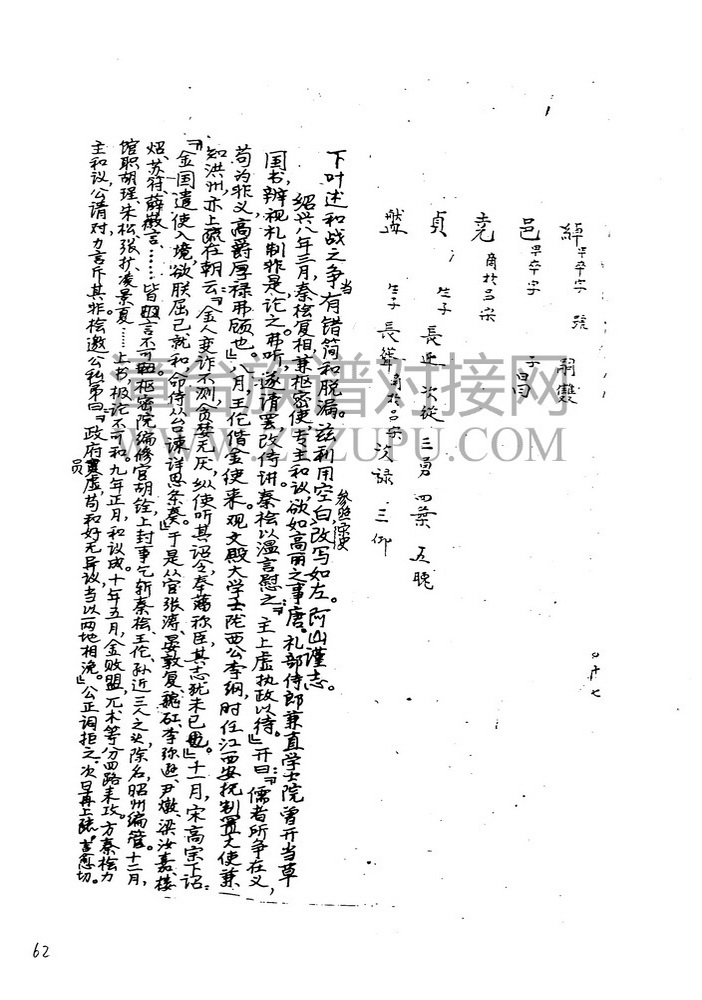 綽 早卒字 號 嗣雙
邑 早卒字 子昌
堯 商於吕宋
貞 生子 長 次從 三勇 四葉 五
盤 生子 長 商於吕宋 次禄 三仰
下叶述和战之争当有错简和脱漏。兹利用空白参照宋史改写如左。阿山谨志。
绍兴八年三月,秦桧复相,兼枢密使,专主和议,欲如高丽之事唐。礼部侍郎兼直学士院曾开当草
国书,辨视礼制非是,论之弗听,遂请罢改侍讲。秦桧以温言慰之:“主上虚执政以待。”开曰:“儒者所争在义,
苟为非义,高爵厚禄弗顾也。”八月,王伦偕金使来。观文殿大学士陇西公李纲,时任江西安抚制置大使兼
知洪州,亦上疏在朝云:“金人变诈不测,贪婪无厌,纵使听其诏令,奉藩称臣,其志犹未已也。”十一月,宋高宗下诏:
“金国遣使入境,欲朕屈己就和,命侍从台谏详思条奏。”于是从官张涛、晏敦复、魏矼、李弥逊、尹燉、梁汝嘉、楼
炤、苏符、薛徽言……皆 言不可。枢密院编修官胡铨上封事,乞斩秦桧、王伦、孙近三人之头,除名,昭州编管。十二月,
馆职胡珵、朱松、张扩、凌景夏……上书极论不可和。九年正月,和议成。十年五月,金败盟,兀术等分四路来攻。方秦桧力
主和议,公请对,力言斥其非。桧邀公私第曰:“政府员虚,苟和好无异议,当以两地相浼。”公正词拒之。次日再上疏,言愈切。
62
寻台族谱对接网
WWW.ZTZUPU.COM